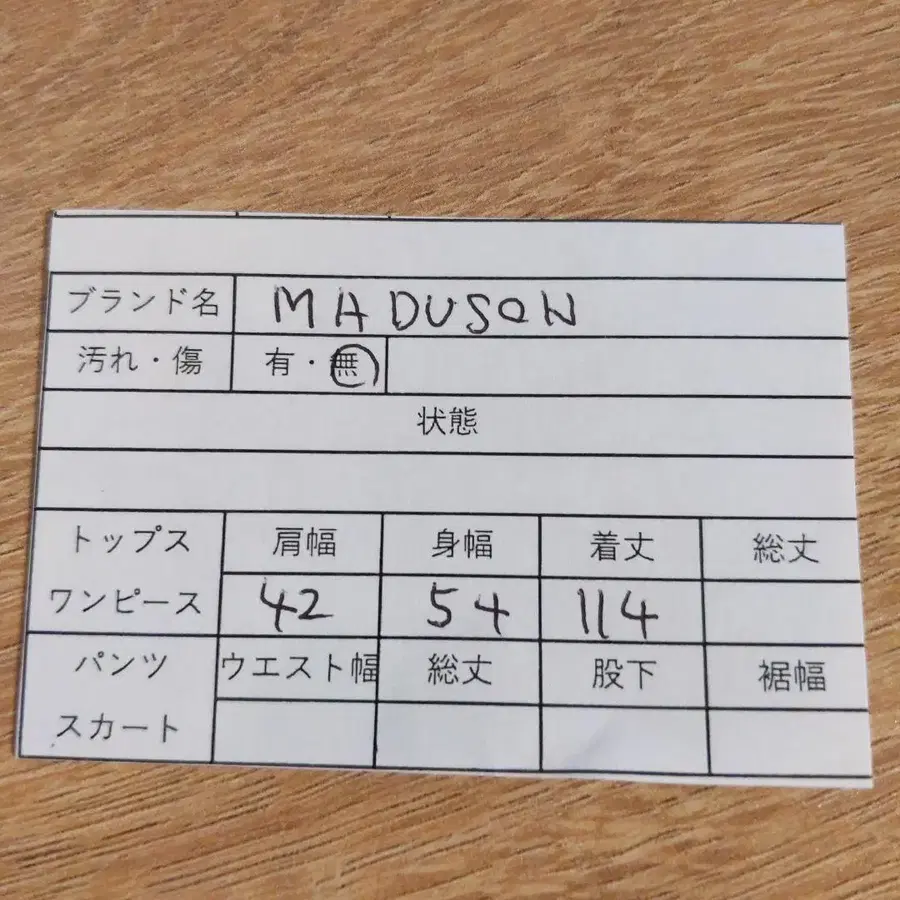 ブランド名 MADUSON
汚れ・傷 有・無
状態
トップス 肩幅 身幅 着丈 総丈
ワンピース 42 54 114
パンツ ウエスト幅 総丈 股下 裾幅
スカート